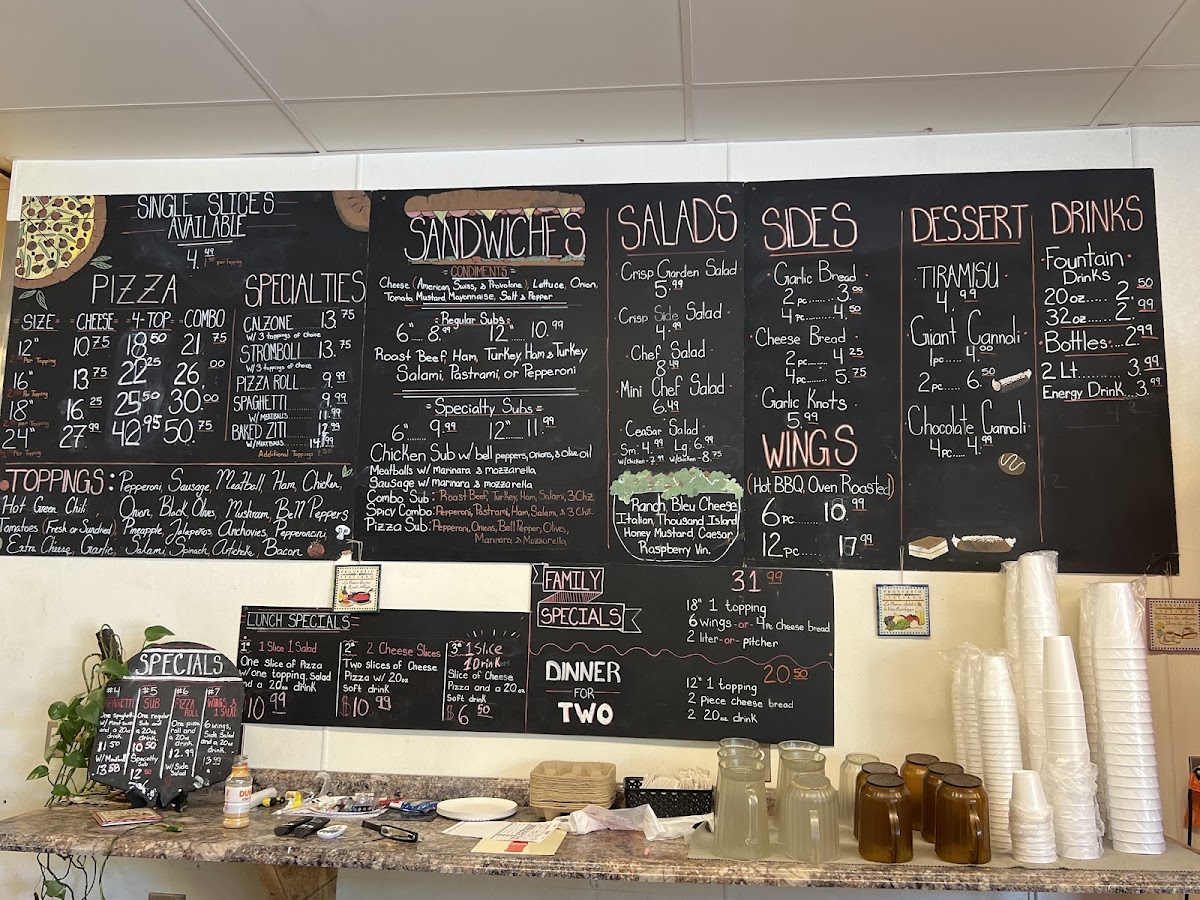 SINGLE SLICES
AVAILABLE
4.49
per topping
PIZZA
SIZE CHEESE 4-TOP COMBO
12" 10.75 18.50 21.75
Per Topping
16" 13.75 22.25 26.00
Per Topping
18" 16.25 25.50 30.00
per Topping
24" 27.99 42.95 50.75
Per Topping
SPECIALTIES
CALZONE 13.75
W/ 3 toppings of choice
STROMBOLI 13.75
W/ 3 toppings of choice
PIZZA ROLL 9.99
SPAGHETTI 9.99
W/ MEATBALLS 11.99
BAKED ZITI 12.99
W/ MEATBALLS 14.99
Additional Toppings 1.50
TOPPINGS: Pepperoni, Sausage, Meatball, Ham, Chicken,
Hot Green Chili, Onion, Black Olives, Mushrum, Bell Peppers
Tomatoes (Fresh or Sundried), Pineapple, Jalapeños, Anchovies, Pepperoncini,
Extra Cheese, Garlic, Salami, Spinach, Artichoke, Bacon
SANDWICHES
CONDIMENTS
Cheese (American, Swiss, & Provolone), Lettuce, Onion,
Tomato, Mustard, Mayonnaise, Salt & Pepper
Regular Subs
6" 8.99 12" 10.99
Roast Beef, Ham, Turkey, Ham & Turkey
Salami, Pastrami, or Pepperoni
Specialty Subs
6" 9.99 12" 11.99
Chicken Sub w/ bell peppers, Onions, & Olive oil
Meatballs w/ marinara & mozzarella
Sausage w/ marinara & mozzarella
Combo Sub: Roast Beef, Turkey, Ham, Salami, 3 Chz
Spicy Combo: Pepperoni, Pastrami, Ham, Salami, & 3 Chz
Pizza Sub: Pepperoni, Onions, Bell Pepper, Olives,
Marinara & Mozzarella
SALADS
Crisp Garden Salad
5.99
Crisp Side Salad
4.99
Chef Salad
8.49
Mini Chef Salad
6.49
Ceasar Salad
Sm: 4.99 Lg: 6.99
w/Chicken - 7.99 w/Chicken - 8.75
Ranch, Bleu Cheese,
Italian, Thousand Island
Honey Mustard, Caesar,
Raspberry Vin.
SIDES
Garlic Bread
2 pc 3.00
4 pc 4.50
Cheese Bread
2 pc 4.25
4 pc 5.75
Garlic Knots
5.99
WINGS
(Hot BBQ, Oven Roasted)
6 PC 10.99
12 pc 17.99
DESSERT
TIRAMISU
4.99
Giant Cannoli
1 pc 4.00
2 pc 6.50
Chocolate Cannoli
4 pc 4.99
DRINKS
Fountain
Drinks
20 oz 2.50
32 oz 2.99
Bottles 2.99
2 Lt 3.99
Energy Drink 3.99
LUNCH SPECIALS
1* 1 Slice 1 Salad
One Slice of Pizza
w/ one topping, Salad
and a 20oz drink
10.99
2* 2 Cheese Slices
Two slices of Cheese
Pizza w/ 20oz
Soft drink
$10.99
3* 1 Slice
1 Drink
Slice of Cheese
Pizza and a 20oz
soft drink
$6.50
FAMILY
SPECIALS
31.99
18" 1 topping
6 wings -or- 4pc Cheese bread
2 liter -or- pitcher
DINNER
FOR
TWO
20.50
12" 1 topping
2 piece cheese bread
2 20oz drink
SPECIALS
#4
SPAGHETTI
One spaghetti
w/ Meat sauce
and a 20oz
drink
11.50
W/ Meatball
13.58
#5
SUB
One regular
Sub and
a 20oz
drink
10.50
Specialty
Sub
12.50
#6
PIZZA
ROLL
One pizza
roll and
a 20oz
drink
12.99
w/ Side
Salad
#7
WINGS &
1 SALAD
6 wings,
Side Salad
and a 20oz
drink
13.99